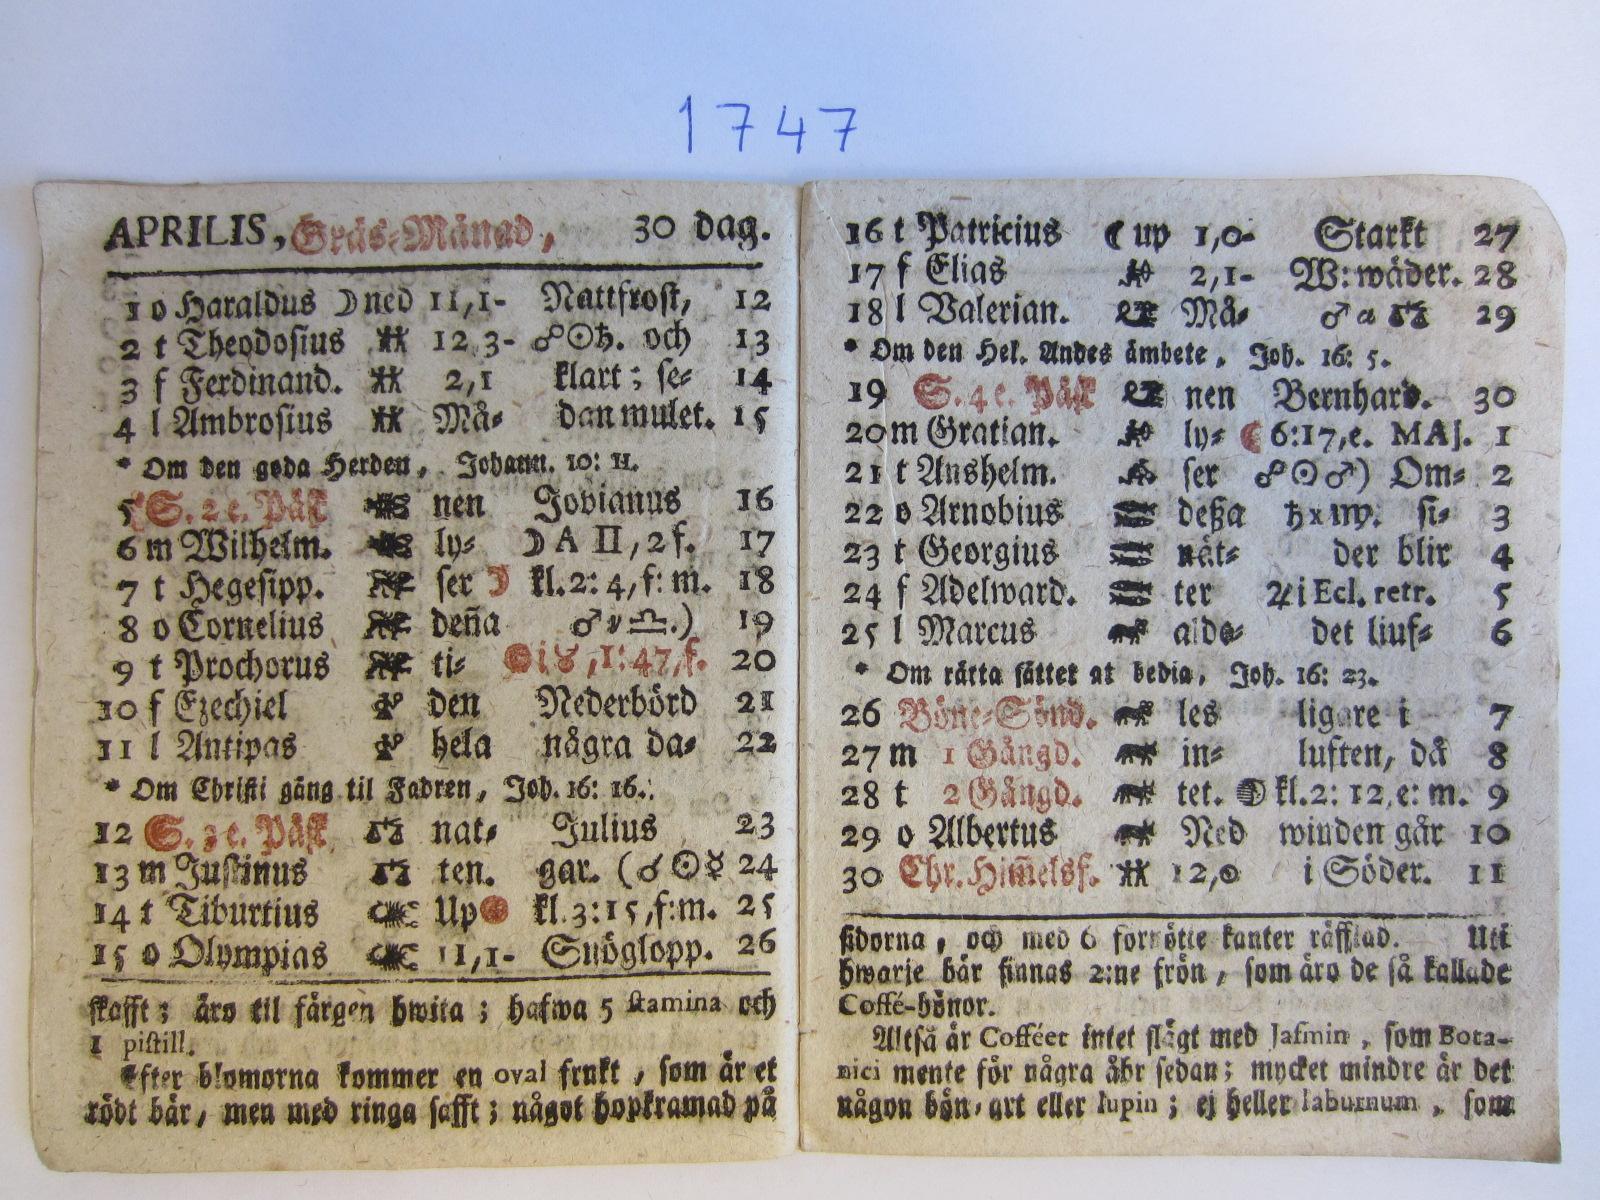 1747
APRILIS, Gräs-Månad, 30 dag.
1 o Haraldus ☽ ned 11,1- Nattfrost, 12
2 t Theodosius 12 3- ☍☉♄. och 13
3 f Ferdinand. 2,1 klart; se- 14
4 l Ambrosius Må- dan mulet. 15
* Om den goda Herden, Johann. 10: 11.
5 S. 2 e. Påsk nen Jovianus 16
6 m Wilhelm. ly- ☽ A II, 2 f. 17
7 t Hegesipp. ser ☽ kl. 2: 4, f: m. 18
8 o Cornelius deña ♂ ♎.) 19
9 t Prochorus ti- i ♉, 1: 47, f. 20
10 f Ezechiel den Nederbörd 21
11 l Antipas hela några da- 22
* Om Christi gång til Fadren, Joh. 16: 16.
12 S. 3 e. Påsk nat- Julius 23
13 m Justinus ten. gar. (☌☉☿ 24
14 t Tiburtius Up kl. 3: 15, f: m. 25
15 o Olympias 11,1- Snöglopp. 26
skafft; äro til färgen hwita; hafwa 5 stamina och
1 pistill.
Efter blomorna kommer en oval frukt, som är et
rödt bär, men med ringa safft; något hopkramad på
16 t Patricius ☾ up 1,0- Starkt 27
17 f Elias 2,1- W: wäder. 28
18 l Valerian. Må- ♂ 29
* Om den Hel. Andes ämbete, Joh. 16: 5.
19 S. 4 e. Påsk nen Bernhard. 30
20 m Gratian. ly- ☾ 6:17, e. MAJ. 1
21 t Anshelm. ser ☍☉♂) Om- 2
22 o Arnobius deßa ♄ x ♍. si- 3
23 t Georgius nät- der blir 4
24 f Adelward. ter ♃ i Ecl. retr. 5
25 l Marcus alde- det liuf- 6
* Om rätta sättet at bedia, Joh. 16: 23.
26 Böne-Sönd. les ligare i 7
27 m 1 Gångd. in- luften, då 8
28 t 2 Gångd. tet. kl. 2: 12, e: m. 9
29 o Albertus Ned winden går 10
30 Chr. Him̃elsf. 12,0 i Söder. 11
sidorna, och med 6 förnötte kanter räfflad. Uti
hwarje bär finnas 2:ne frön, som äro de så kallade
Coffé-bönor.
Altså är Cofféet intet slägt med Jasmin, som Bota-
nici mente för några åhr sedan; mycket mindre är det
någon bön-art eller lupin; ej heller laburnum, som